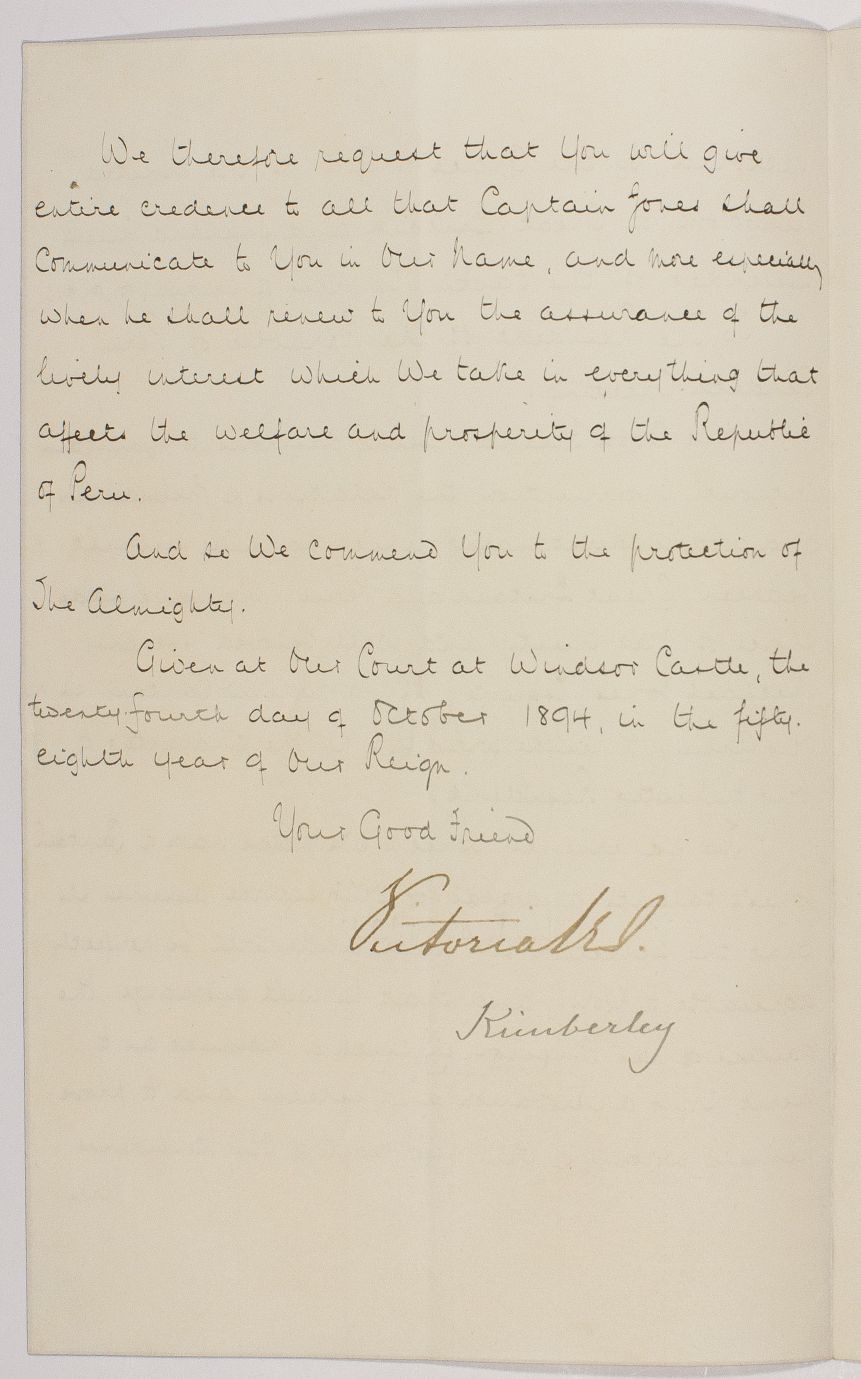 We therefore request that You will give
entire credence to all that Captain Jones shall
Communicate to You in Our Name, and more especially
when he shall renew to You the assurance of the
lively interest which We take in everything that
affects the welfare and prosperity of the Republic
of Peru.
And so We commend You to the protection of
The Almighty.
Given at Our Court at Windsor Castle, the
twenty-fourth day of October 1894, in the fifty-
eighth year of Our Reign.
Your Good Friend
Victoria R I.
Kimberley